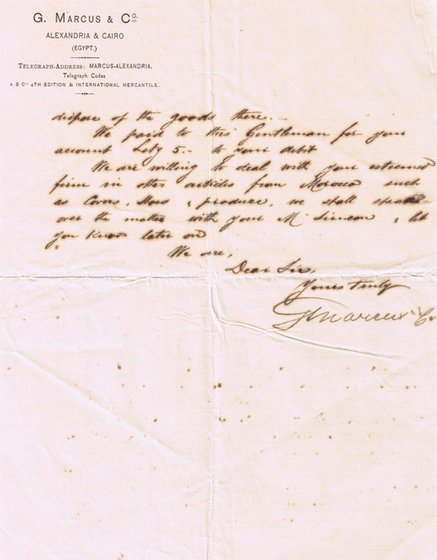 G. MARCUS & CO.
ALEXANDRIA & CAIRO
(EGYPT.)
TELEGRAPH-ADDRESS: MARCUS-ALEXANDRIA.
Telegraph Codes
A B C 4TH EDITION & INTERNATIONAL MERCANTILE.
dispose of the goods there.
We paid to this Gentleman for your
account 5.- to your debit
We are willing to deal with your esteemed
firm in other articles from Morocco such
as & produce, we shall speak
over the matter with your Mr Simeon & let
you know later on
We are,
Dear Sir,
Yours truly
G Marcus & Co